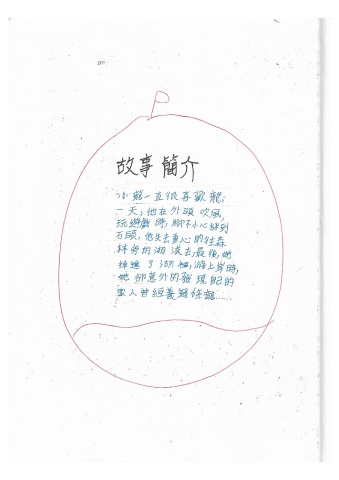 故事簡介
小龍一直很喜歡龍,
一天,他在外頭吹風,
玩遊戲時,腳不小心踩到
石頭,他失去重心的往森
林旁的湖滾去,最後,她
掉進了湖裡,游上岸時,
她卻意外的發現自己的
家人曾經養過條龍......